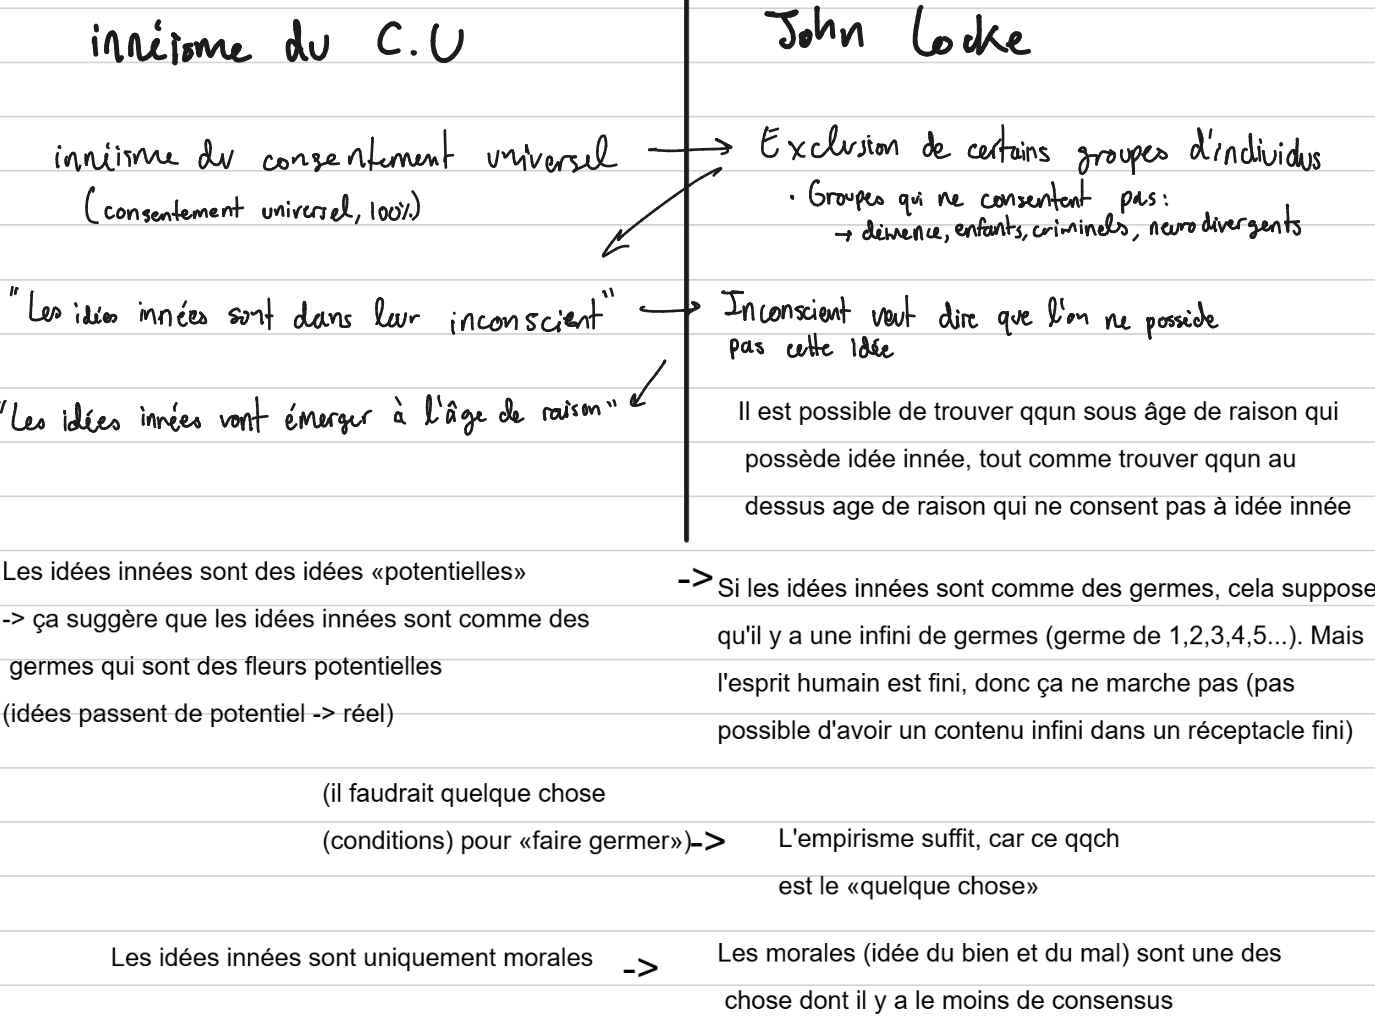 innéisme du C.U
John Locke
innéisme du consentement universel
(consentement universel, 100%)
Exclusion de certains groupes d'individus
· Groupes qui ne consentent pas:
→ démence, enfants, criminels, neurodivergents
"Les idées innées sont dans leur inconscient"
Inconscient veut dire que l'on ne possède
pas cette idée
"Les idées innées vont émerger à l'âge de raison"
Il est possible de trouver qqun sous âge de raison qui
possède idée innée, tout comme trouver qqun au
dessus age de raison qui ne consent pas à idée innée
Les idées innées sont des idées «potentielles»
-> ça suggère que les idées innées sont comme des
germes qui sont des fleurs potentielles
(idées passent de potentiel -> réel)
-> Si les idées innées sont comme des germes, cela suppose
qu'il y a une infini de germes (germe de 1,2,3,4,5...). Mais
l'esprit humain est fini, donc ça ne marche pas (pas
possible d'avoir un contenu infini dans un réceptacle fini)
(il faudrait quelque chose
(conditions) pour «faire germer»)->
L'empirisme suffit, car ce qqch
est le «quelque chose»
Les idées innées sont uniquement morales ->
Les morales (idée du bien et du mal) sont une des
chose dont il y a le moins de consensus